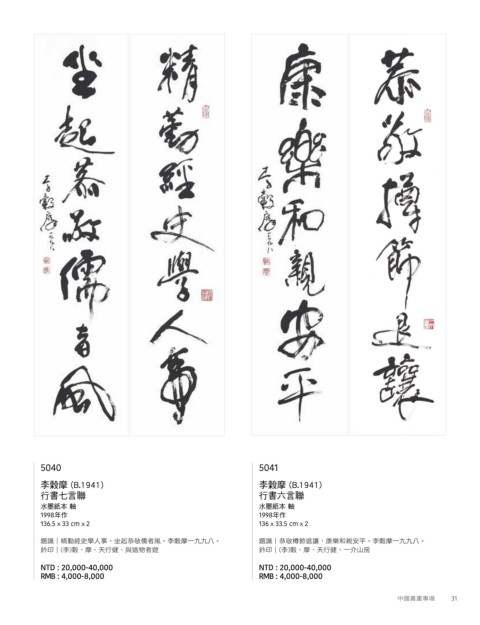 精勤經史學人事
坐起恭敬儒者風
李轂摩一九九八
恭敬撙節退讓
康樂和親安平
李轂摩一九九八
5040
李轂摩 (B.1941)
行書七言聯
水墨紙本 軸
1998年作
136.5 x 33 cm x 2
題識｜精勤經史學人事，坐起恭敬儒者風。李轂摩一九九八。
鈐印｜(李)轂、摩、天行健、與造物者遊
NTD : 20,000-40,000
RMB : 4,000-8,000
5041
李轂摩 (B.1941)
行書六言聯
水墨紙本 軸
1998年作
136 x 33.5 cm x 2
題識｜恭敬樽節退讓，康樂和親安平。李轂摩一九九八。
鈐印｜(李)轂、摩、天行健、一介山房
NTD : 20,000-40,000
RMB : 4,000-8,000
中國書畫專場 31